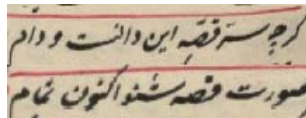 گرچه سر قصه این دانست و دام
صورت قصه شنو اکنون تمام